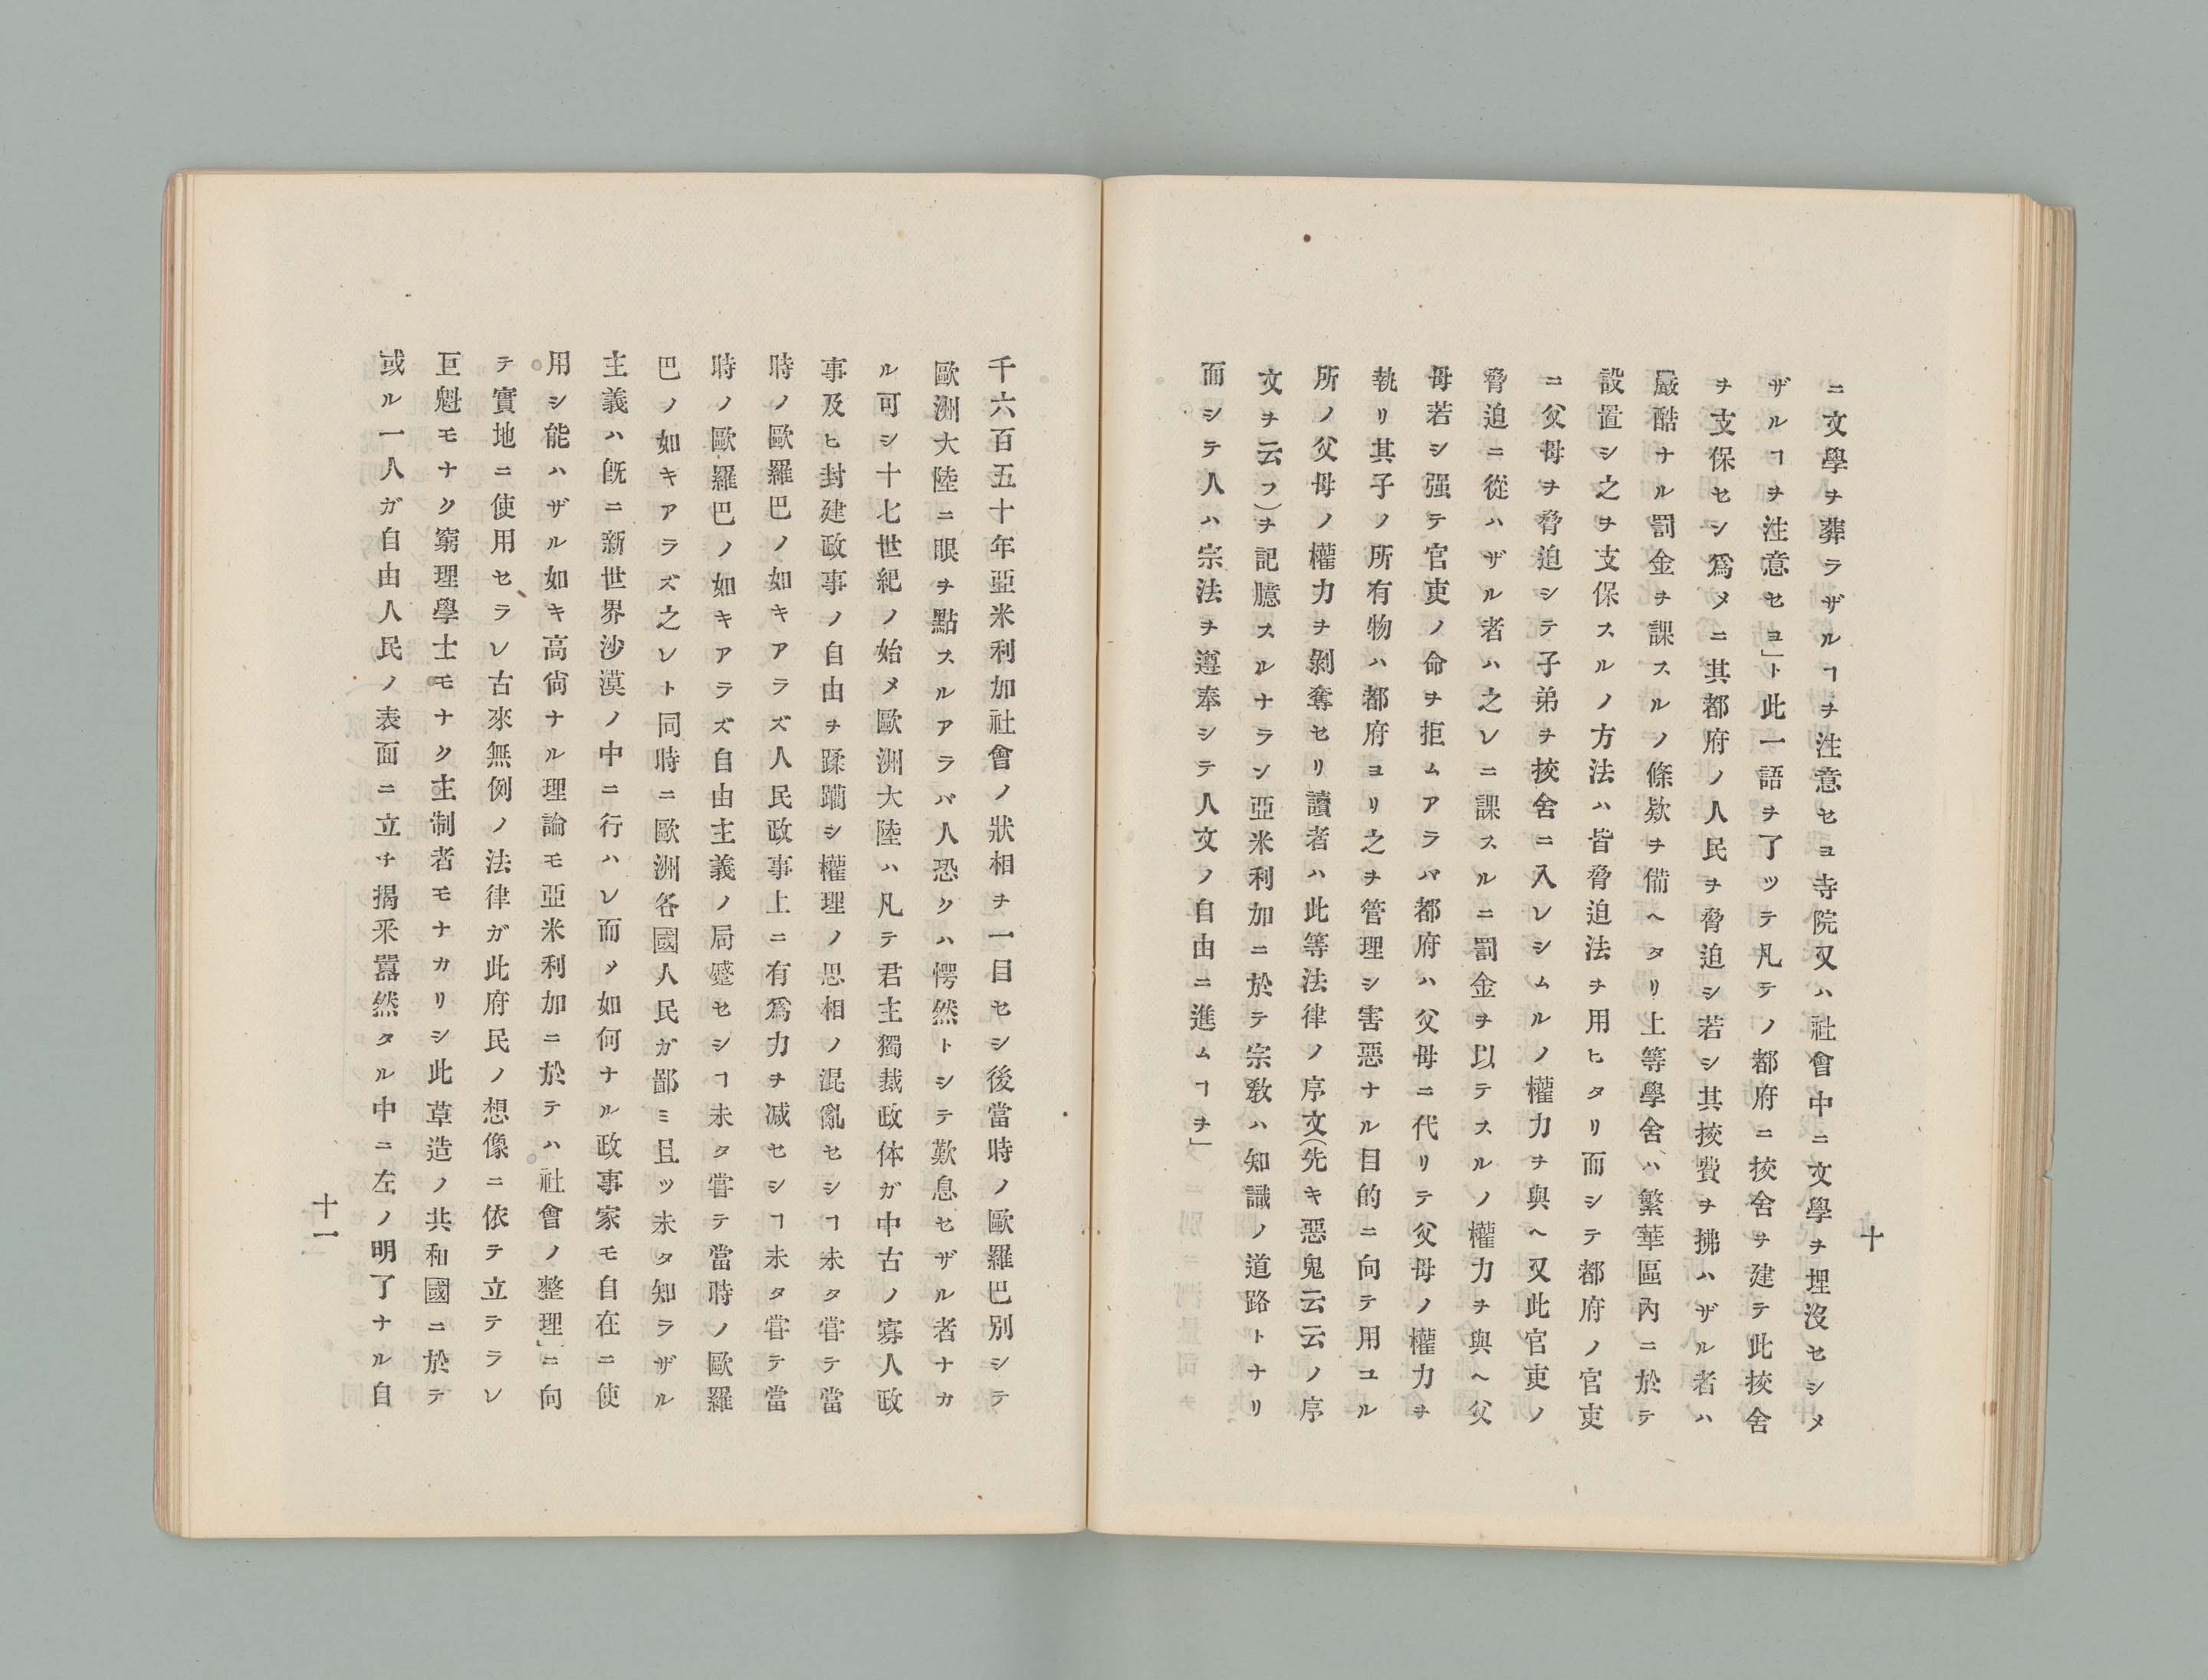 ニ文學ヲ葬ラザルヿヲ注意セヨ寺院又ハ社會中ニ文學ヲ埋沒セシメ
ザルヿヲ注意セヨ」ト此一語ヲ了ツテ凡テノ都府ニ挍舍ヲ建テ此挍舍
ヲ支保セシ爲メニ其都府ノ人民ヲ脅迫シ若シ其挍費ヲ拂ハザル者ハ
嚴酷ナル罰金ヲ課スルノ條欵ヲ備ヘタリ上等學舍ハ繁華區內ニ於テ
設置シ之ヲ支保スルノ方法ハ皆脅迫法ヲ用ヒタリ而シテ都府ノ官吏
ニ父母ヲ脅迫シテ子弟ヲ挍舍ニ入レシムルノ權力ヲ與ヘ又此官吏ノ
脅迫ニ從ハザル者ハ之レニ課スルニ罰金ヲ以テスルノ權力ヲ與ヘ父
母若シ强テ官吏ノ命ヲ拒ムアラバ都府ハ父母ニ代リテ父母ノ權力ヲ
執リ其子ノ所有物ハ都府ヨリ之ヲ管理シ害惡ナル目的ニ向テ用ユル
所ノ父母ノ權力ヲ剝奪セリ讀者ハ此等法律ノ序文(先キ惡鬼云云ノ序
文ヲ云フ)ヲ記臆スルナラン亞米利加ニ於テ宗敎ハ知識ノ道路トナリ
而シテ人ハ宗法ヲ遵奉シテ人文ノ自由ニ進ムヿヲ」
十
千六百五十年亞米利加社會ノ狀相ヲ一目セシ後當時ノ歐羅巴別シテ
歐洲大陸ニ眼ヲ點スルアラバ人恐クハ愕然トシテ歎息セザル者ナカ
ル可シ十七世紀ノ始メ歐洲大陸ハ凡テ君主獨裁政体ガ中古ノ寡人政
事及ヒ封建政事ノ自由ヲ蹂躪シ權理ノ思相ノ混亂セシヿ未タ甞テ當
時ノ歐羅巴ノ如キアラズ人民政事上ニ有爲力ヲ减セシヿ未タ甞テ當
時ノ歐羅巴ノ如キアラズ自由主義ノ局蹙セシヿ未タ甞テ當時ノ歐羅
巴ノ如キアラズ之レト同時ニ歐洲各國人民ガ鄙ミ且ツ未タ知ラザル
主義ハ旣ニ新世界沙漠ノ中ニ行ハレ而メ如何ナル政事家モ自在ニ使
用シ能ハザル如キ高尙ナル理論モ亞米利加ニ於テハ社會ノ整理」ニ向
テ實地ニ使用セラレ古來無例ノ法律ガ此府民ノ想像ニ依テ立テラレ
巨魁モナク窮理學士モナク主制者モナカリシ此草造ノ共和國ニ於テ
或ル一人ガ自由人民ノ表面ニ立チ揭釆囂然タル中ニ左ノ明了ナル自
十一